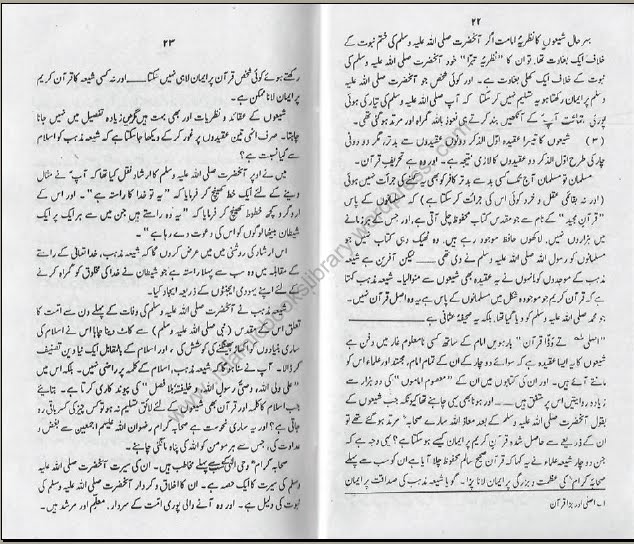 ۲۲
بہر حال شیعوں کا نظریۂ امامت اگر آنحضرت صلی اللہ علیہ وسلم کی ختم نبوت کے
خلاف ایک بغاوت تھا، تو ان کا "نظریۂ تبرّا" خود آنحضرت صلی اللہ علیہ وسلم کی
نبوت کے خلاف ایک کھلی بغاوت ہے۔ اور کوئی شخص جو آنحضرت صلی اللہ علیہ
وسلم پر ایمان رکھتا ہو یہ تسلیم نہیں کر سکتا کہ آپ صلی اللہ علیہ وسلم کی تیار کی ہوئی
پوری جماعت آپؐ کے آنکھیں بند کرتے ہی نعوذ باللہ گمراہ اور مرتد ہو گئی تھی۔
(۳) شیعوں کا تیسرا عقیدہ اول الذکر دونوں عقیدوں سے بدتر، مگر دو دونی
چار کی طرح اول الذکر دو عقیدوں کا لازمی نتیجہ ہے۔ اور وہ ہے تحریف قرآن۔
مسلمان تو مسلمان آج تک کسی بد سے بدتر کافر کو بھی یہ کہنے کی جرأت نہیں ہوئی
(اور نہ بقائمی عقل و خرد کوئی اس کی جرأت کر سکتا ہے) کہ مسلمانوں کے پاس
"قرآن مجید" کے نام سے جو مقدس کتاب محفوظ چلی آتی ہے، اور جس کے ہر زمانے
میں ہزاروں نہیں، لاکھوں حافظ موجود رہے ہیں، وہ ٹھیک وہی کتاب نہیں جو
مسلمانوں کو رسول اللہ صلی اللہ علیہ وسلم نے دی تھی ــــــ لیکن آفرین ہے شیعہ
مذہب کے موجدوں کو، انہوں نے یہ عقیدہ بھی شیعوں سے منوا لیا۔ شیعہ مذہب کہتا
ہے کہ قرآن کریم جو موجودہ شکل میں مسلمانوں کے پاس ہے یہ وہ اصل قرآن نہیں
جو محمد صلی اللہ علیہ وسلم کو دیا گیا تھا، بلکہ یہ صحیفۂ عثمانی ہے ــــــ
"اصلی تے وڈا قرآن" بارہویں امام کے ساتھ کسی نامعلوم غار میں دفن ہے
شیعوں کا یہ ایسا عقیدہ ہے کہ سوائے دو چار کے ان کے تمام امام، مجتہد اور علماء اس کو
مانتے آئے ہیں۔ اور ان کی کتابوں میں ان کے "معصوم اماموں" کی دو ہزار سے
زیادہ روایتیں اس پر متفق ہیں ــــــ اور ہونا بھی یہی چاہئے تھا کیونکہ جب شیعوں کے
بقول آنحضرت صلی اللہ علیہ وسلم کے بعد معاذ اللہ سارے صحابہؓ مرتد ہو گئے تھے تو
ان کے ذریعے سے حاصل شدہ قرآن کریم پر ایمان کیسے ہو سکتا ہے؟ یہی وجہ ہے کہ
جن دو چار شیعہ علماء نے یہ کہا کہ قرآن صحیح سالم محفوظ چلا آیا ہے ان کو سب سے پہلے
صحابہ کرامؓ کی عظمت و بزرگی پر ایمان لانا پڑا۔ گویا شیعہ مذہب کی صداقت پر ایمان
۱۔ اصلی اور بڑا قرآن
۲۳
رکھتے ہوئے کوئی شخص قرآن پر ایمان لا ہی نہیں سکتا ــــــ اور نہ کسی شیعہ کا قرآن کریم
پر ایمان لانا ممکن ہے۔
شیعوں کے عقائد و نظریات اور بھی بہت ہیں مگر میں زیادہ تفصیل میں نہیں جانا
چاہتا۔ صرف انہی تین عقیدوں پر غور کر کے دیکھا جا سکتا ہے کہ شیعہ مذہب کو اسلام
سے کیا نسبت ہے؟
میں نے اوپر آنحضرت صلی اللہ علیہ وسلم کا ارشاد نقل کیا تھا کہ آپؐ نے مثال
دینے کے لئے ایک خط کھینچ کر فرمایا کہ "یہ تو خدا کا راستہ ہے"۔ اور اس کے
ارد گرد کچھ خطوط کھینچ کر فرمایا کہ "یہ وہ راستے ہیں جن میں سے ہر ایک پر ایک
شیطان بیٹھا لوگوں کو اس کی دعوت دے رہا ہے"۔
اس ارشاد کی روشنی میں میں عرض کروں گا کہ شیعہ مذہب، خدا تعالیٰ کے راستے
کے مقابلہ میں وہ سب سے پہلا راستہ ہے جو شیطان نے خدا کی مخلوق کو گمراہ کرنے
کے لئے اپنے یہودی ایجنٹوں کے ذریعہ ایجاد کیا۔
شیعہ مذہب نے آنحضرت صلی اللہ علیہ وسلم کی وفات کے پہلے دن سے امت کا
تعلق اس کے مقدس نبی (صلی اللہ علیہ وسلم) سے کاٹ دینا چاہا، اس نے اسلام کی
ساری بنیادوں کو اکھاڑ پھینکنے کی کوشش کی، اور اسلام کے بالمقابل ایک نیا دین تصنیف
کر ڈالا۔ آپ نے سنا ہو گا کہ شیعہ مذہب اسلام کے کلمہ پر راضی نہیں۔ بلکہ اس میں
"علی ولی اللہ، وصی رسول اللہ، و خلیفتہ بلا فصل" کی پیوند کاری کرتا ہے۔ بتائیے
جب اسلام کا کلمہ اور قرآن بھی شیعوں کے لئے لائق تسلیم نہ ہو تو کس چیز کی کسر باقی رہ
جاتی ہے؟ اور یہ ساری نحوست ہے صحابہ کرام رضوان اللہ علیہم اجمعین سے بغض و
عداوت کی، جس سے ہر مومن کو اللہ کی پناہ مانگنی چاہئے۔
صحابہ کرامؓ وحی الٰہی کے سب سے پہلے مخاطب ہیں۔ ان کی سیرت آنحضرت صلی اللہ علیہ
وسلم کی سیرت کا ایک حصہ ہے۔ ان کا اخلاق و کردار آنحضرت صلی اللہ علیہ وسلم کی
نبوت کی دلیل ہے۔ اور وہ آنے والی پوری امت کے سردار، معلّم اور مرشد ہیں۔